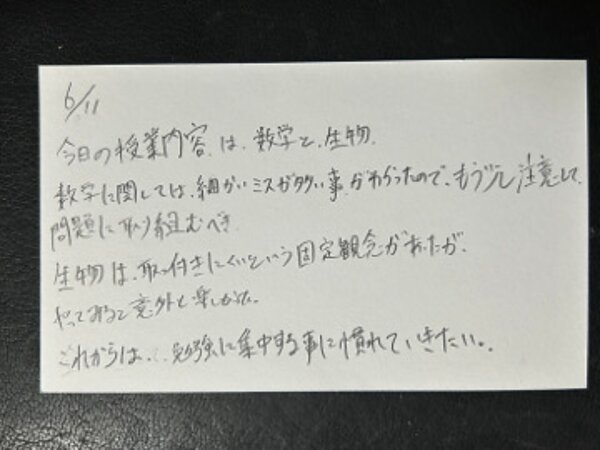 6/11
今日の授業内容は、数学と、生物。
数学に関しては、細かいミスが多い事がわかったので、もう少し注意して
問題に取り組むべき
生物は、取っ付きにくいという固定観念があったが、
やってみると意外と楽しかった。
これからは、勉強に集中する事に慣れていきたい。